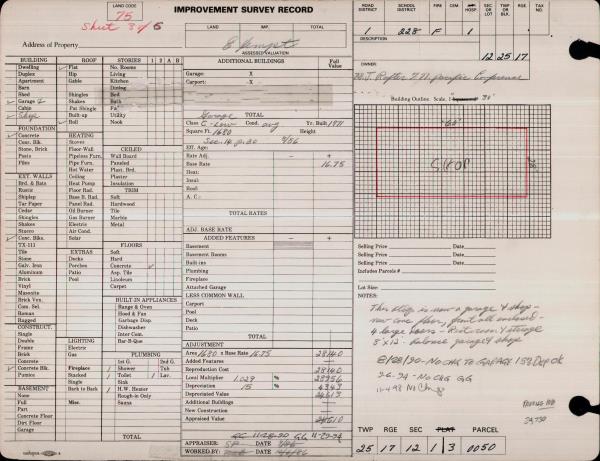 LAND CODE
75
Sheet 3 of 6
IMPROVEMENT SURVEY RECORD
LAND IMP. TOTAL
ASSESSED VALUATION
Address of Property
ROAD DISTRICT SCHOOL DISTRICT FIRE CEM. HOSP. SEC OR LOT TWP OR BLK. RGE TAX NO.
1 228 F 1 12 25 17
DESCRIPTION
BUILDING ROOF STORIES 1 2 A B
Dwelling Flat No. Rooms
Duplex Hip Living
Apartment Gable Kitchen
Barn Dining
Shed Shingles Bed
Garage 2 Shakes Bath
Cabin Pat Shingle Fin.
Shop Built-up Utility
Roll Nook
FOUNDATION
Concrete HEATING
Conc. Blk. Stoves CEILED
Stone, Brick Floor Wall Board
Post Pipeless Furn. Paneled
Piers Pipe Furn. Plast. Brd.
Hot Water Plaster
EXT. WALLS Ceiling Insulation
Brd. & Bats Heat Pump TRIM
Rustic Floor Rad. Soft
Shiplap Base B. Rad. Hardwood
Tar Paper Panel Rad. Tile
Cedar Oil Burner Marble
Shingles Gas Burner Metal
Shakes Electric
Stucco Air Cond.
Conc. Blks. Solar FLOORS
TX-111 Soft
Tile EXTRAS Hard
Stone Decks Concrete
Galv. Iron Porches Asp. Tile
Aluminum Patio Linoleum
Brick Pool Carpet
Vinyl
Masonite
Brick Ven. BUILT-IN APPLIANCES
Com. Sel. Range & Oven
Roman Hood & Fan
Rugged Garbage Disp.
CONSTRUCT. Dishwasher
Single Inter Com.
Double LIGHTING Bar-B-Que
Frame Electric
Brick PLUMBING
Concrete 1st G. 2nd G.
Concrete Blk. Fireplace Shower Tub
Pumice Stacked Toilet Lav.
Single Sink
BASEMENT Back to Back H.W. Heater
Full Misc. Rough-in Only
Part Sauna
Concrete Floor
Dirt Floor
Garage TOTAL
ADDITIONAL BUILDINGS Full Value
Garage: X
Carport: X
Garage
Class C-Low Cond. avg Yr. Built 1971
Square Ft. 1680 Height
Sec. 14 p. 30 9/86
Eff. Age:
Rate Adj. − +
Base Rate 16.75
Heat:
Insul:
Roof
A. C.:
TOTAL RATES
ADJ. BASE RATE
ADDED FEATURES − +
Basement
Basement Rooms
Built ins
Plumbing
Fireplace
Attached Garage
LESS COMMON WALL
Carport
Pool
Deck
Patio
ADJUSTMENT
Area 1680 x Base Rate 16.75 28140
Added Features
Reproduction Cost 28140
Local Multiplier 1.029 28956
Depreciation 15 % 4343
Depreciated Value 24613
Additional Buildings
New Construction
Appraised Value 24610
APPRAISER: DATE
WORKED BY: DATE
Building Outline. Scale, 1"
60'
28'
SHOP
Selling Price Date
Selling Price Date
Selling Price Date
Includes Parcels #
Lot Size:
NOTES:
This bldg is now a garage & shop -
4 large doors -
8' x 12' - balance garage & shop
8/28/90 - No CHG TO GARAGE
3-6-94 - No CHG GG
11-4-98 No Chg
24,730
TWP RGE SEC PLAT PARCEL
25 17 12 1 3 0050